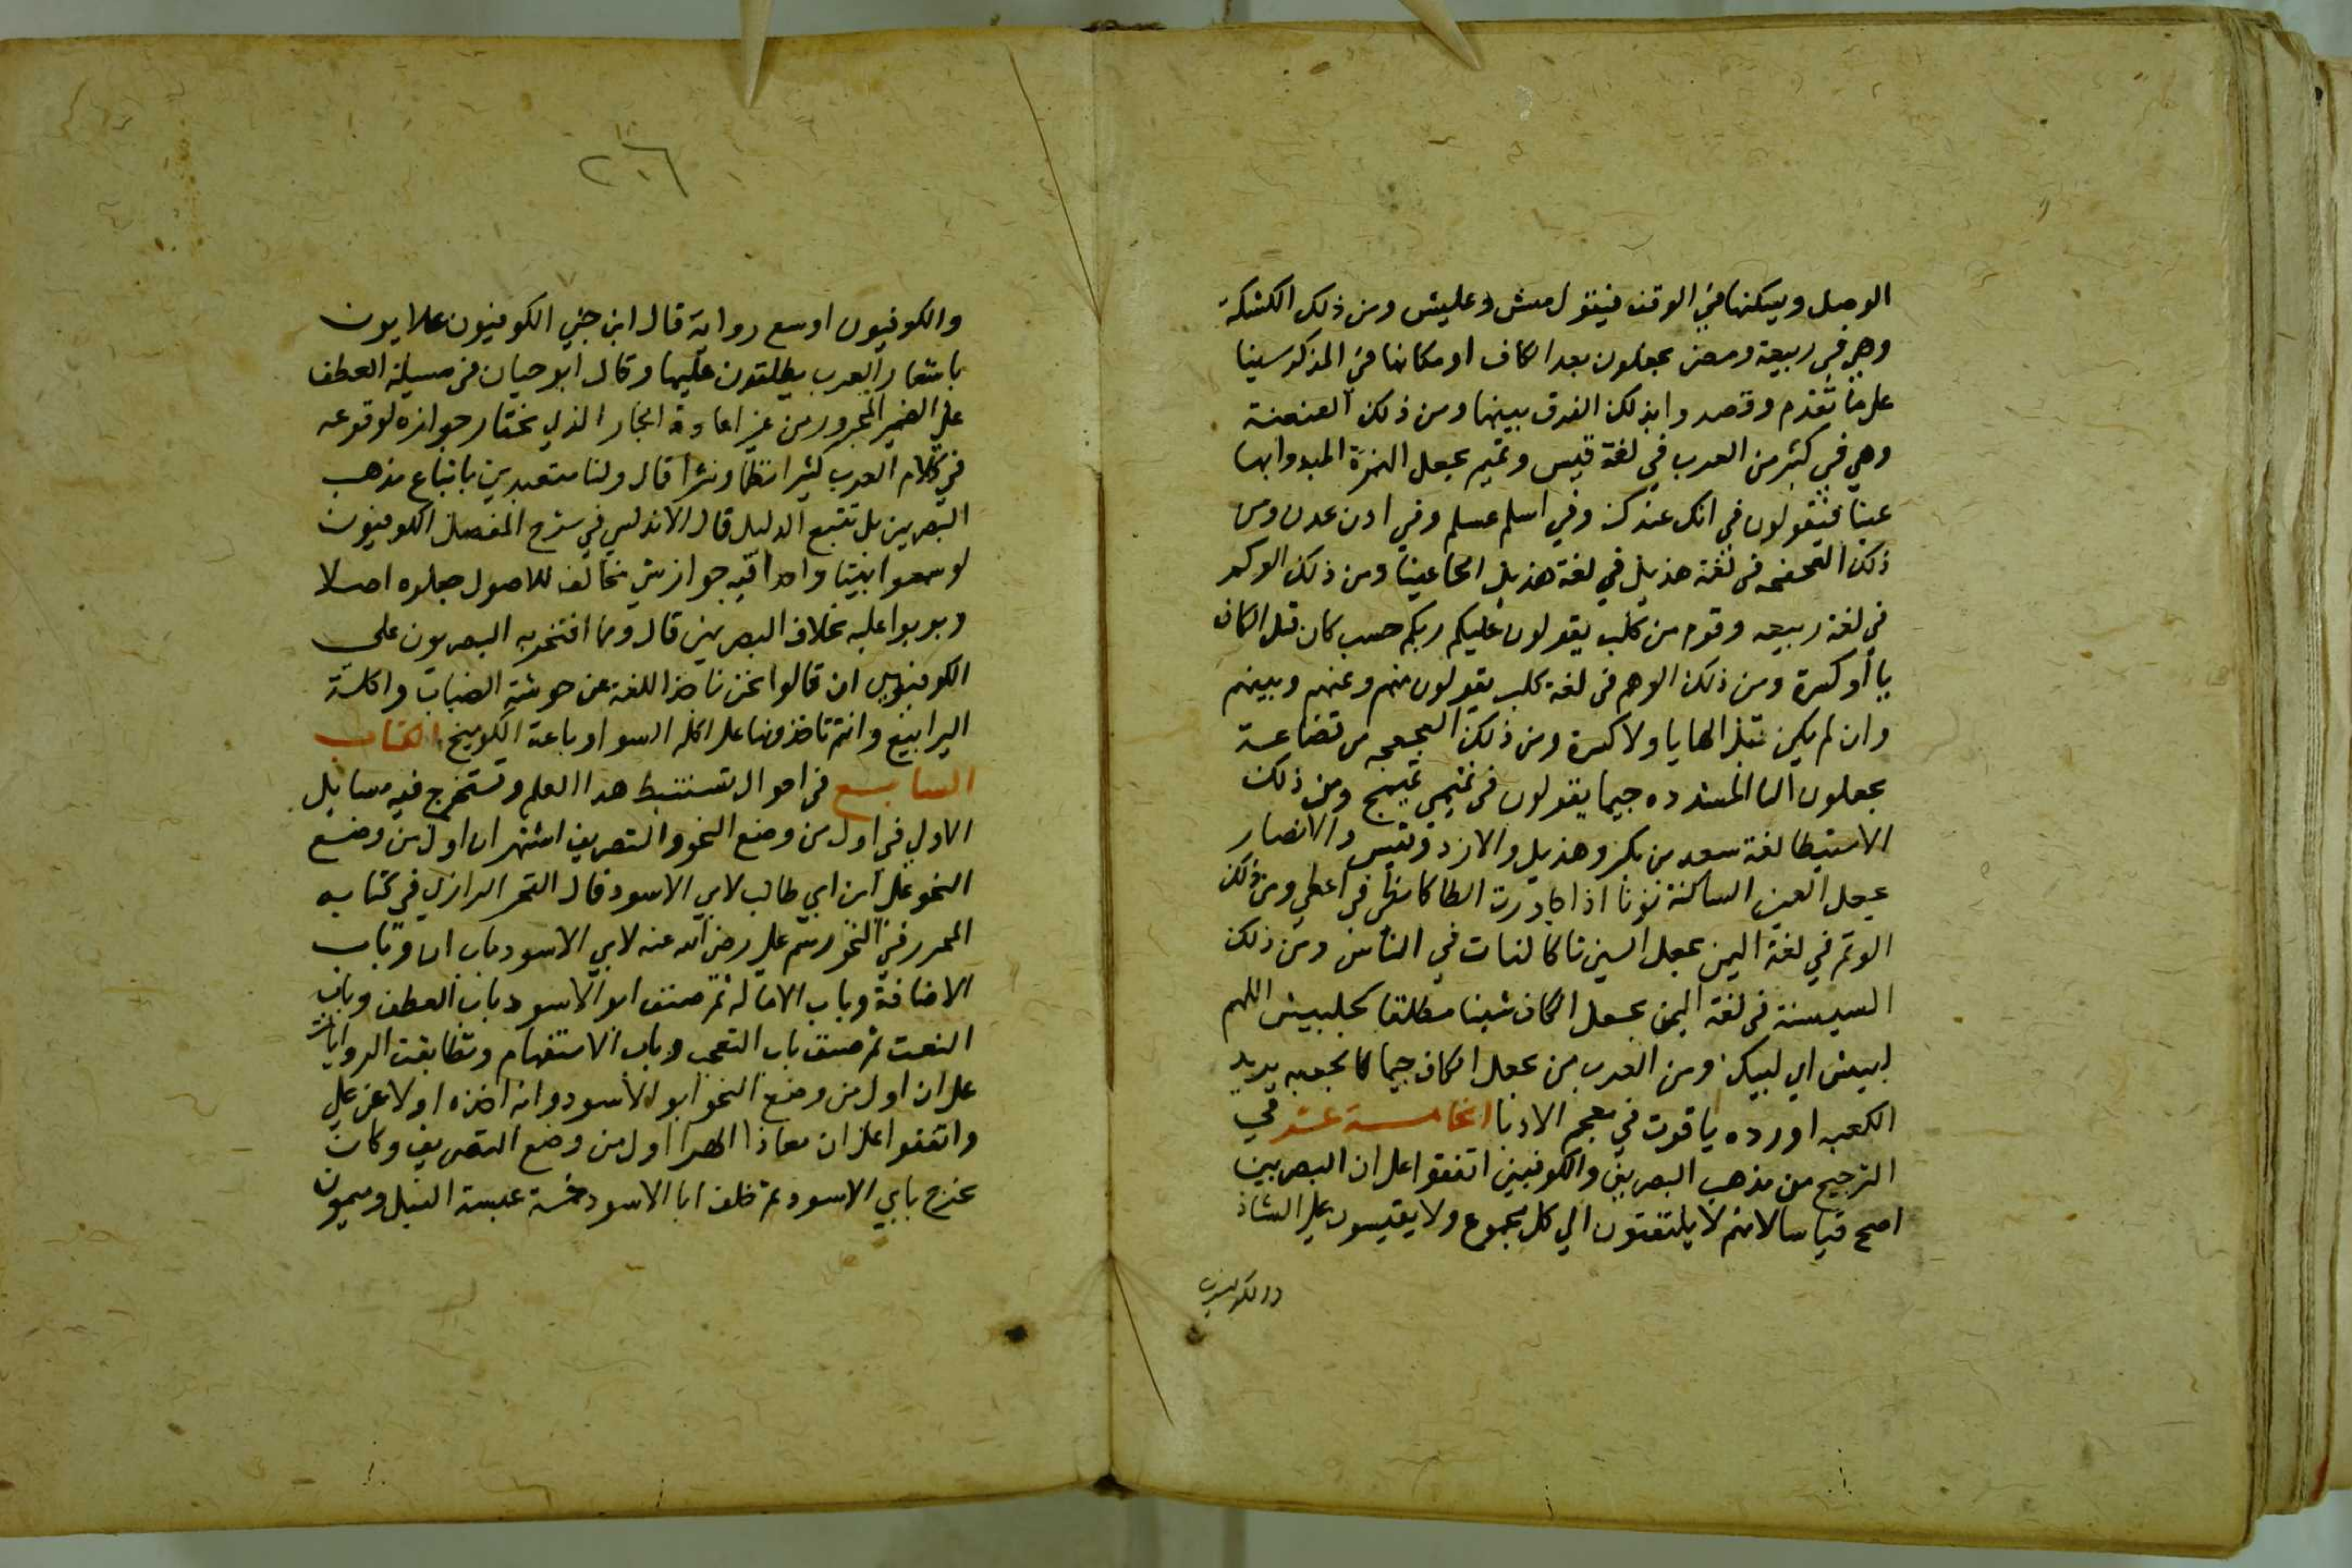 الوصل ويسكنها في الوقف فيقول منش وعليش ومن ذلك الكسكسة
وهي في ربيعة ومضر يجعلون بعد الكاف او مكانها في المذكر سينا
على ما تقدم وقصدوا بذلك الفرق بينهما ومن ذلك العنعنة
وهي في كثير من العرب في لغة قيس وتميم يجعل الهمزة المبدوا بها
عينا فيقولون في انك عنك وفي اسلم عسلم وفي اذن عذن ومن
ذلك الفحفحه في لغة هذيل في لغة هذيل الحا عينا ومن ذلك الوكم
في لغة ربيعه وقوم من كلب يقولون عليكم وبكم حيث كان قبل الكاف
يا أو كسرة ومن ذلك الوهم في لغة كلب يقولون منهم وعنهم وبينهم
وان لم يكن قبل الها يا ولا كسرة ومن ذلك العجعجه في قضاعة
يجعلون اليا المشدده جيما يقولون في تميمي تميمج ومن ذلك
الاستنطا لغة سعد بن بكر وهذيل والازد وقيس والانصار
يجعل العين الساكنة نونا اذا جاورت الطا كانطى في اعطي ومن ذلك
الوتم في لغة اليمن يجعل السين تا كالنات في الناس ومن ذلك
الشنشنة في لغة اليمن يجعل الكاف شينا مطلقا كلبيش اللهم
لبيش اي لبيك ومن العرب من يجعل الكاف جيما كالجعبه يريد
الكعبه اورده ياقوت في معجم الادبا الخامسة عشر في
الترجيح من مذهب البصريين والكوفيين اتفقوا على ان البصريين
اصح قياسا لانهم لا يلتفتون الي كل مسموع ولا يقيسون على الشاذ
والكوفيون
٢٠٦
والكوفيون اوسع رواية قال ابن جني الكوفيون علامون
باشعار العرب مطلعون عليها وقال ابو حيان في مسيلة العطف
على الضمير المجرور من غير اعادة الجار الذي يختار جوازه لوقوعه
في كلام العرب كثيرا نظما ونثرا قال ولسنا متعبدين باتباع مذهب
البصريين بل نتبع الدليل قال الاندلسي في شرح المفصل الكوفيون
لو سمعوا بيتا واحدا فيه جواز شي مخالف للاصول جعلوه اصلا
وبوبوا عليه بخلاف البصريين قال ومما افتخر به البصريون على
الكوفيين ان قالوا نحن ناخذ اللغة عن حرشة الضباب واكلة
اليرابيع وانتم تاخذونها عن اكلة السواد وباعة الكواميخ الكتاب
السابع في احوال مستنبط هذا العلم ومستخرجه فيه مسايل
الاولي في اول من وضع النحو والتصريف اشتهر ان اول من وضع
النحو علي ابن ابي طالب لابي الاسود قال الفخر الرازي في كتابه
المحرر في النحو رسم علي رضي الله عنه لابي الاسود باب ان وباب
الاضافة وباب الامالة ثم صنف ابو الاسود باب العطف وباب
النعت ثم صنف باب التعجب وباب الاستفهام وتطابقت الروايات
على ان اول من وضع النحو ابو الاسود وانه اخذه اولا عن علي
واتفقوا على ان معاذا الهرا اول من وضع التصريف وكان
تخرج بابي الاسود ثم خلف ابا الاسود خمسة عنبسة الفيل وميمون